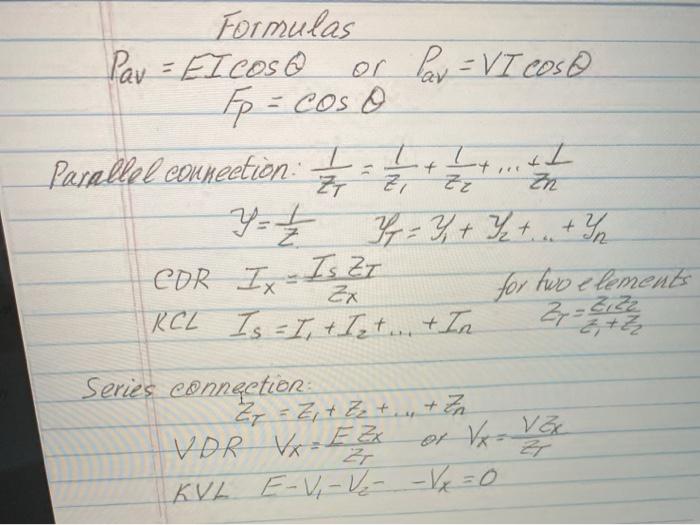 Formulas
Pav = EI cos θ or Pav = VI cos θ
Fp = cos θ
Parallel connection: 1/ZT = 1/Z1 + 1/Z2 + ... + 1/Zn
Y = 1/Z YT = Y1 + Y2 + ... + Yn
CDR Ix = Is ZT/Zx
for two elements
KCL Is = I1 + I2 + ... + In ZT = Z1Z2/Z1+Z2
Series connection:
ZT = Z1 + Z2 + ... + Zn
VDR Vx = E Zx/ZT or Vx = V Zx/ZT
KVL E - V1 - V2 - - Vx = 0